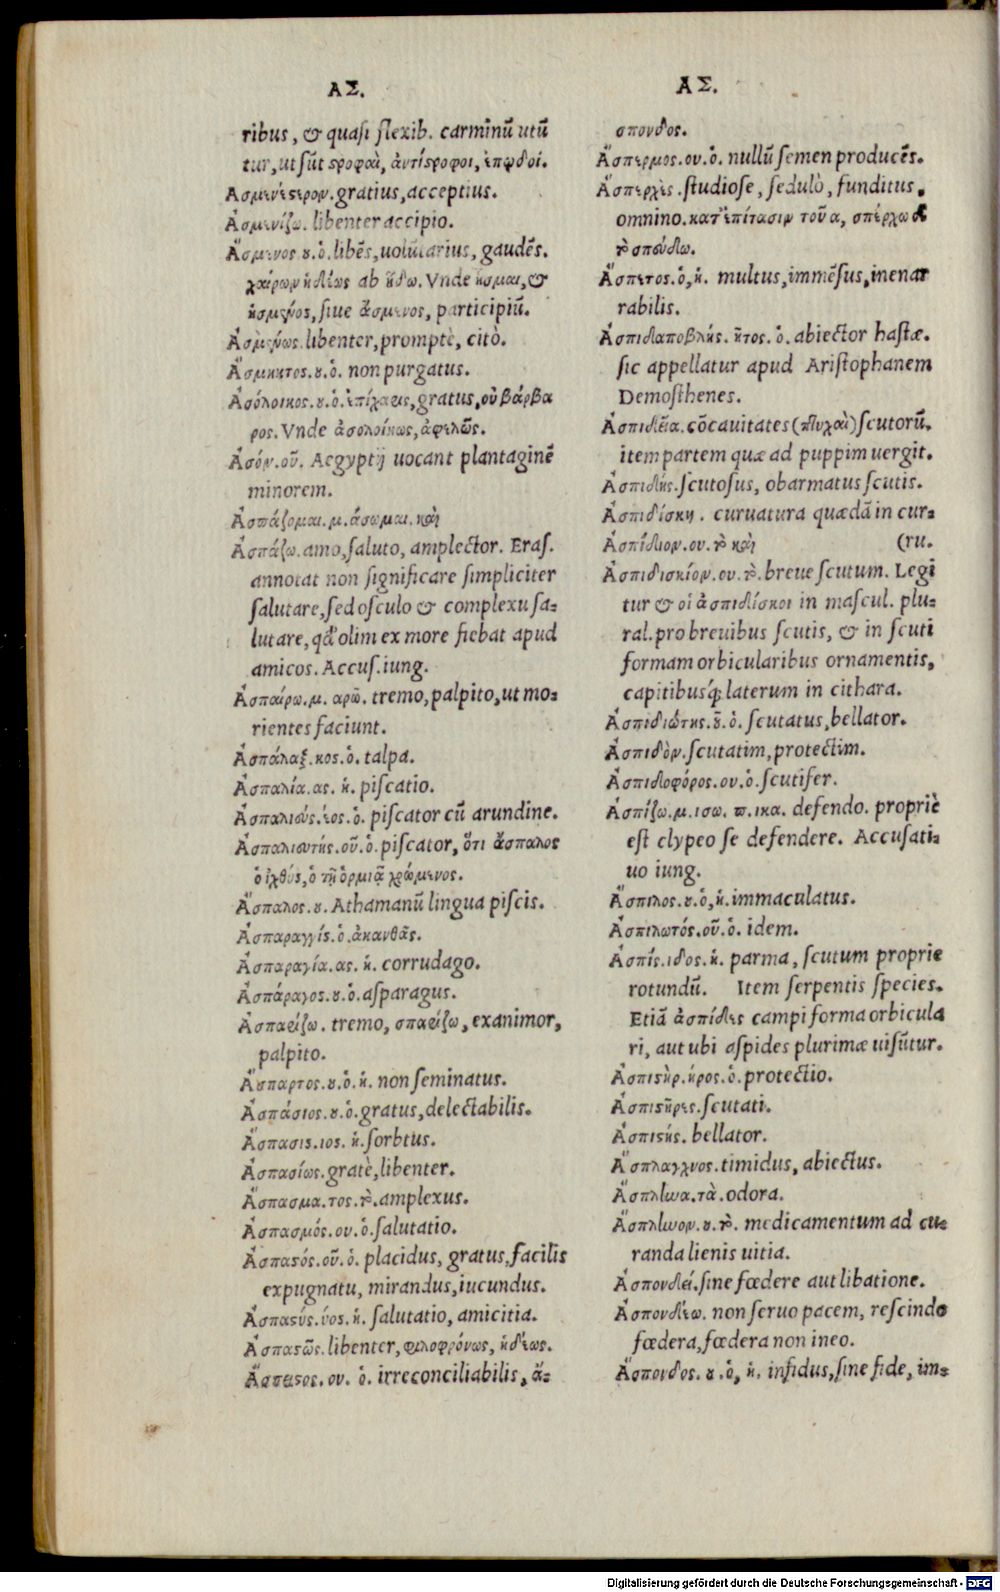 ΑΣ.
ribus, & quasi flexib. carminū utū
tur, ut sūt στροφαὶ, ἀντίστροφοι, ἐπῳδοί.
Ασμενέστερον. gratius, acceptius.
Ἀσμενίζω. libenter accipio.
Ἄσμενος.ου.ὁ. libēs, uolūtarius, gaudēs.
χαίρων ἡδέως ab ἥδω. Vnde ἥσμαι, &
ἡσμένος, siue ἄσμενος, participiū.
Ἀσμένως. libenter, promptè, citò.
Ἄσμηκτος.ου.ὁ. non purgatus.
Ἀσόλοικος.ου.ὁ. ἐπίχαρις, gratus, οὐ βάρβα
ρος. Vnde ἀσολοίκως, ἀφελῶς.
Ἀσόν.οῦ. Aegyptij uocant plantaginē
minorem.
Ἀσπάζομαι.μ.άσωμαι. καὶ
Ἀσπάζω. amo, saluto, amplector. Eras.
annotat non significare simpliciter
salutare, sed osculo & complexu sa-
lutare, qđ olim ex more fiebat apud
amicos. Accus. iung.
Ἀσπαίρω.μ. αρῶ. tremo, palpito, ut mo-
rientes faciunt.
Ἀσπάλαξ.κος.ὁ. talpa.
Ἀσπαλία.ας. ἡ. piscatio.
Ἀσπαλιεύς.έος.ὁ. piscator cū arundine.
Ἀσπαλιευτής.οῦ.ὁ. piscator, ὅτι ἄσπαλος
ὁ ἰχθύς, ὁ τῇ ὁρμιᾷ χρώμενος.
Ἄσπαλος.ου. Athamanū lingua piscis.
Ἀσπαραγγίς.ὁ.ἀκανθᾶς.
Ἀσπαραγία.ας. ἡ. corrudago.
Ἀσπάραγος.ου.ὁ. asparagus.
Ἀσπαρίζω. tremo, σπαρίζω, exanimor,
palpito.
Ἄσπαρτος.ου.ὁ.ἡ. non seminatus.
Ἀσπάσιος.ου.ὁ. gratus, delectabilis.
Ἄσπασις.ιος. ἡ. sorbtus.
Ἀσπασίως. gratè, libenter.
Ἄσπασμα.τος.τὸ. amplexus.
Ἀσπασμός.ου.ὁ. salutatio.
Ἀσπαστός.οῦ.ὁ. placidus, gratus, facilis
expugnatu, mirandus, iucundus.
Ἀσπαστύς.ύος.ἡ. salutatio, amicitia.
Ἀσπαστῶς. libenter, φιλοφρόνως, ἡδέως.
Ἄσπειστος.ου. ὁ. irreconciliabilis, ἄ-
ΑΣ.
σπονδος.
Ἄσπερμος.ου.ὁ. nullū semen producēs.
Ἀσπερχὲς. studiose, sedulò, funditus,
omnino. κατ' ἐπίτασιν τοῦ α, σπέρχω δὲ
τὸ σπεύδω.
Ἄσπετος.ὁ, ἡ. multus, immēsus, inenar
rabilis.
Ἀσπιδαποβλής. ῆτος. ὁ. abiector hastæ.
sic appellatur apud Aristophanem
Demosthenes.
Ἀσπιδεῖα. cōcauitates (πτυχαὶ) scutorū.
item partem quæ ad puppim uergit.
Ἀσπιδής. scutosus, obarmatus scutis.
Ἀσπιδίσκη. curuatura quædā in cur-
Ἀσπίδιον.ου.τὸ καὶ (ru.
Ἀσπιδισκίον.ου.τὸ. breue scutum. Legi
tur & οἱ ἀσπιδίσκοι in mascul. plu-
ral. pro breuibus scutis, & in scuti
formam orbicularibus ornamentis,
capitibusq; laterum in cithara.
Ἀσπιδιώτης.ου.ὁ. scutatus, bellator.
Ἀσπιδὸν. scutatim, protectim.
Ἀσπιδοφόρος.ου.ὁ. scutifer.
Ἀσπίζω.μ.ισω. π.ικα. defendo. propriè
est clypeo se defendere. Accusati-
uo iung.
Ἄσπιλος.ου.ὁ, ἡ. immaculatus.
Ἀσπιλωτός.οῦ.ὁ. idem.
Ἀσπίς.ιδος.ἡ. parma, scutum proprie
rotundū. Item serpentis species.
Etiā ἀσπίδες campi forma orbicula
ri, aut ubi aspides plurimæ uisūtur.
Ἀσπιστὴρ.ῆρος.ὁ. protectio.
Ἀσπιστῆρες. scutati.
Ἀσπιστής. bellator.
Ἄσπλαγχνος. timidus, abiectus.
Ἄσπληνα.τὰ. odora.
Ἄσπληνον.ου.τὸ. medicamentum ad cu-
randa lienis uitia.
Ἀσπονδεί. sine fœdere aut libatione.
Ἀσπονδέω. non seruo pacem, rescindo
fœdera, fœdera non ineo.
Ἄσπονδος.ου.ὁ, ἡ. infidus, sine fide, im-
Digitalisierung gefördert durch die Deutsche Forschungsgemeinschaft - DFG